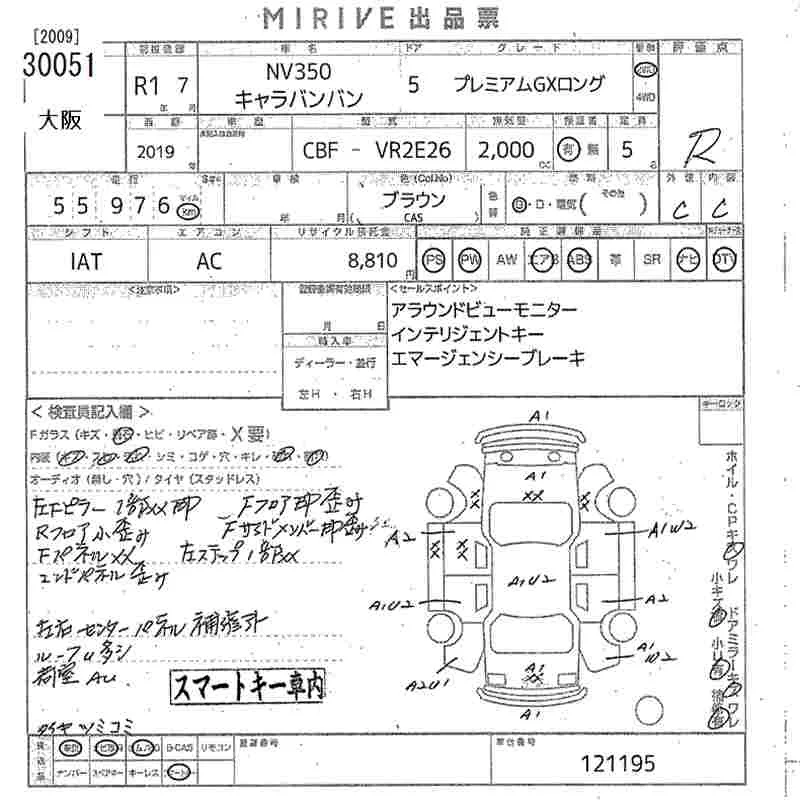 MIRIVE 出品票
[2009]
30051
大阪
初度登録 車名 ドア グレード 駆動 評価点
R1 7 NV350 キャラバンバン 5 プレミアムGXロング 2WD 4WD
年 月
R
西暦 車歴 型式 排気量 保証書 定員
2019 CBF - VR2E26 2,000 cc 有 無 5 名
走行 車検 色(Col.No) 燃料 外装 内装
55 976 マイル Km 年 月 ブラウン (CAS ) 色替 G・D・電気( その他 ) C C
シフト エアコン リサイクル預託金 純正装備品
IAT AC 8,810 円 PS PW AW エアB ABS 革 SR ナビ DTV
<注意事項> 登録後譲渡期限 <セールスポイント>
月 日
アラウンドビューモニター
インテリジェントキー
エマージェンシーブレーキ
輸入車
ディーラー・並行
左H ・ 右H
< 検査員記入欄 > キーロック
Fガラス (キズ・ ・ヒビ・リペア跡・X要)
内装 ( ・ ・ ・シミ・コゲ・穴・キレ・ ・ )
オーディオ (無し・穴) / タイヤ (スタッドレス)
左Fピラー 1部XX 印 Fフロア印歪み
Rフロア小歪み Fサイドメンバー印歪み
Fパネルxx 左ステップ1部xx
エンドパネル歪み
左右センターパネル補修汁
ルーフu多シ
荷室 AU
スマートキー車内
タイヤツミコミ
A1
A1
XX
XX
A2
XX
XX
A1W2
A1U2
A1U2
A2
A2U1
A1
XX
A1
W2
A1
ホイル・CPキズワレ
ドアミラーキズワレ
B-CAS リモコン 登録番号 車台番号
ナンバー スペアキー キーレス
121195